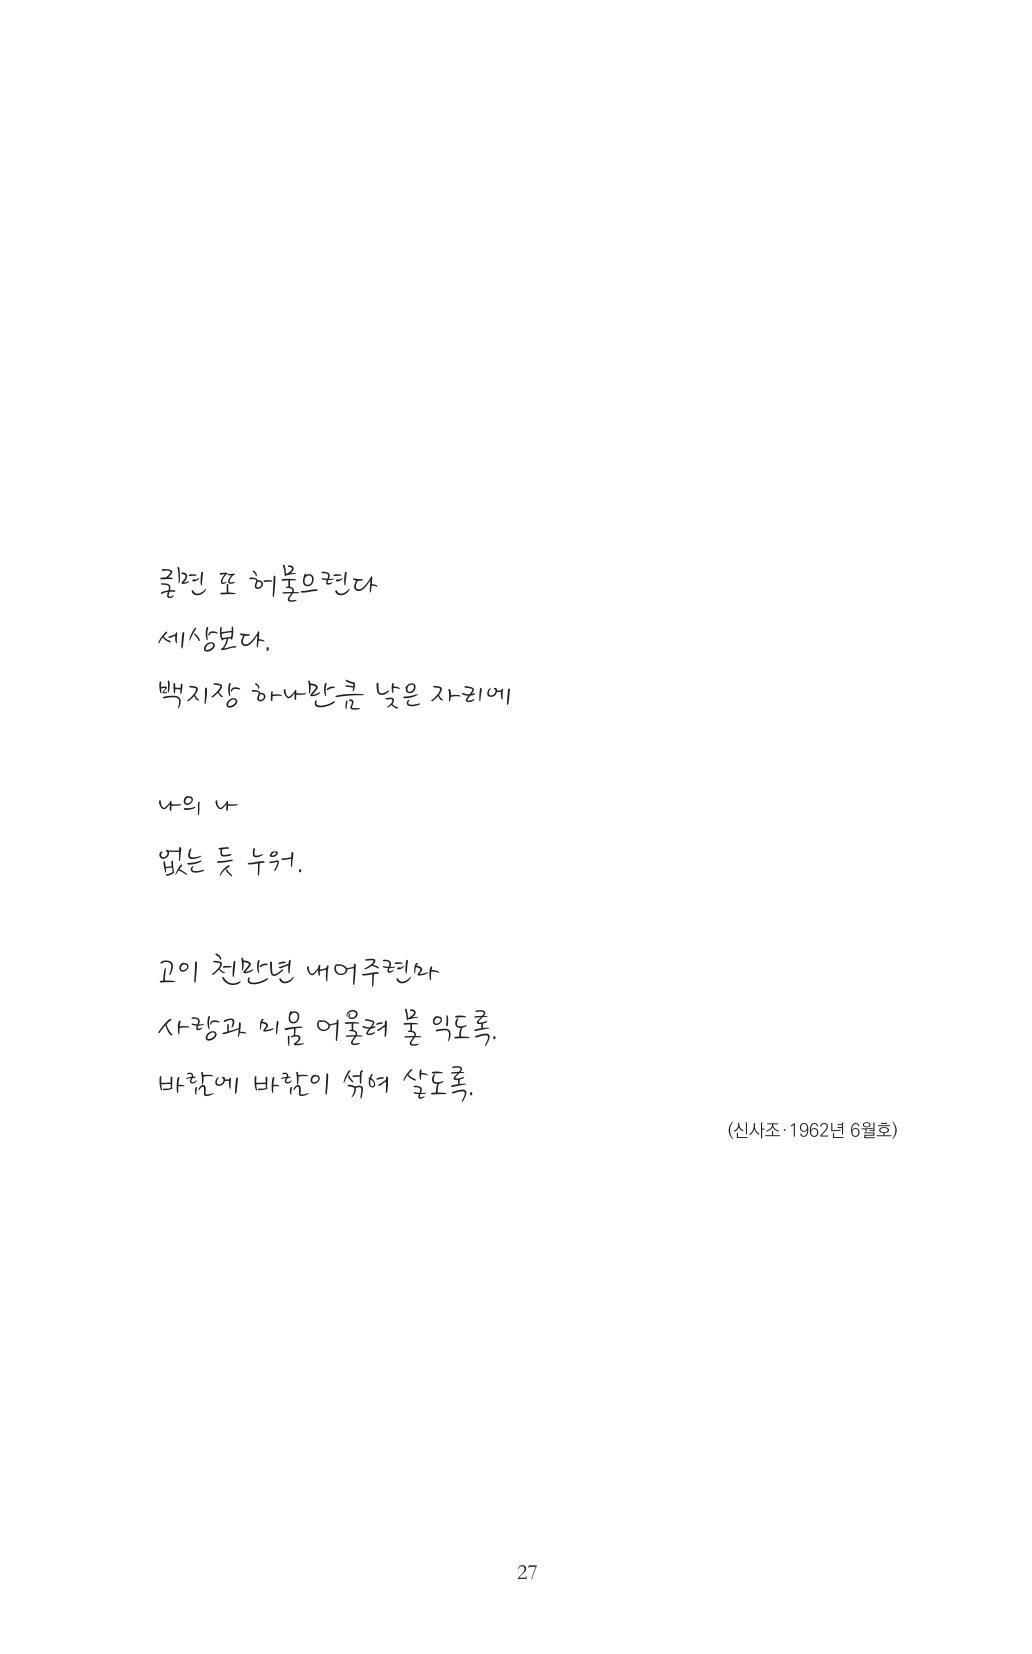 또 허물으련다
세상보다.
백지장 하나만큼 낮은 자리에
나의 나
없는 듯 누워.
고이 천만년 내어주련마
사랑과 미움 어울려 물 익도록.
바람에 바람이 섞여 살도록.
(신사조·1962년 6월호)
27